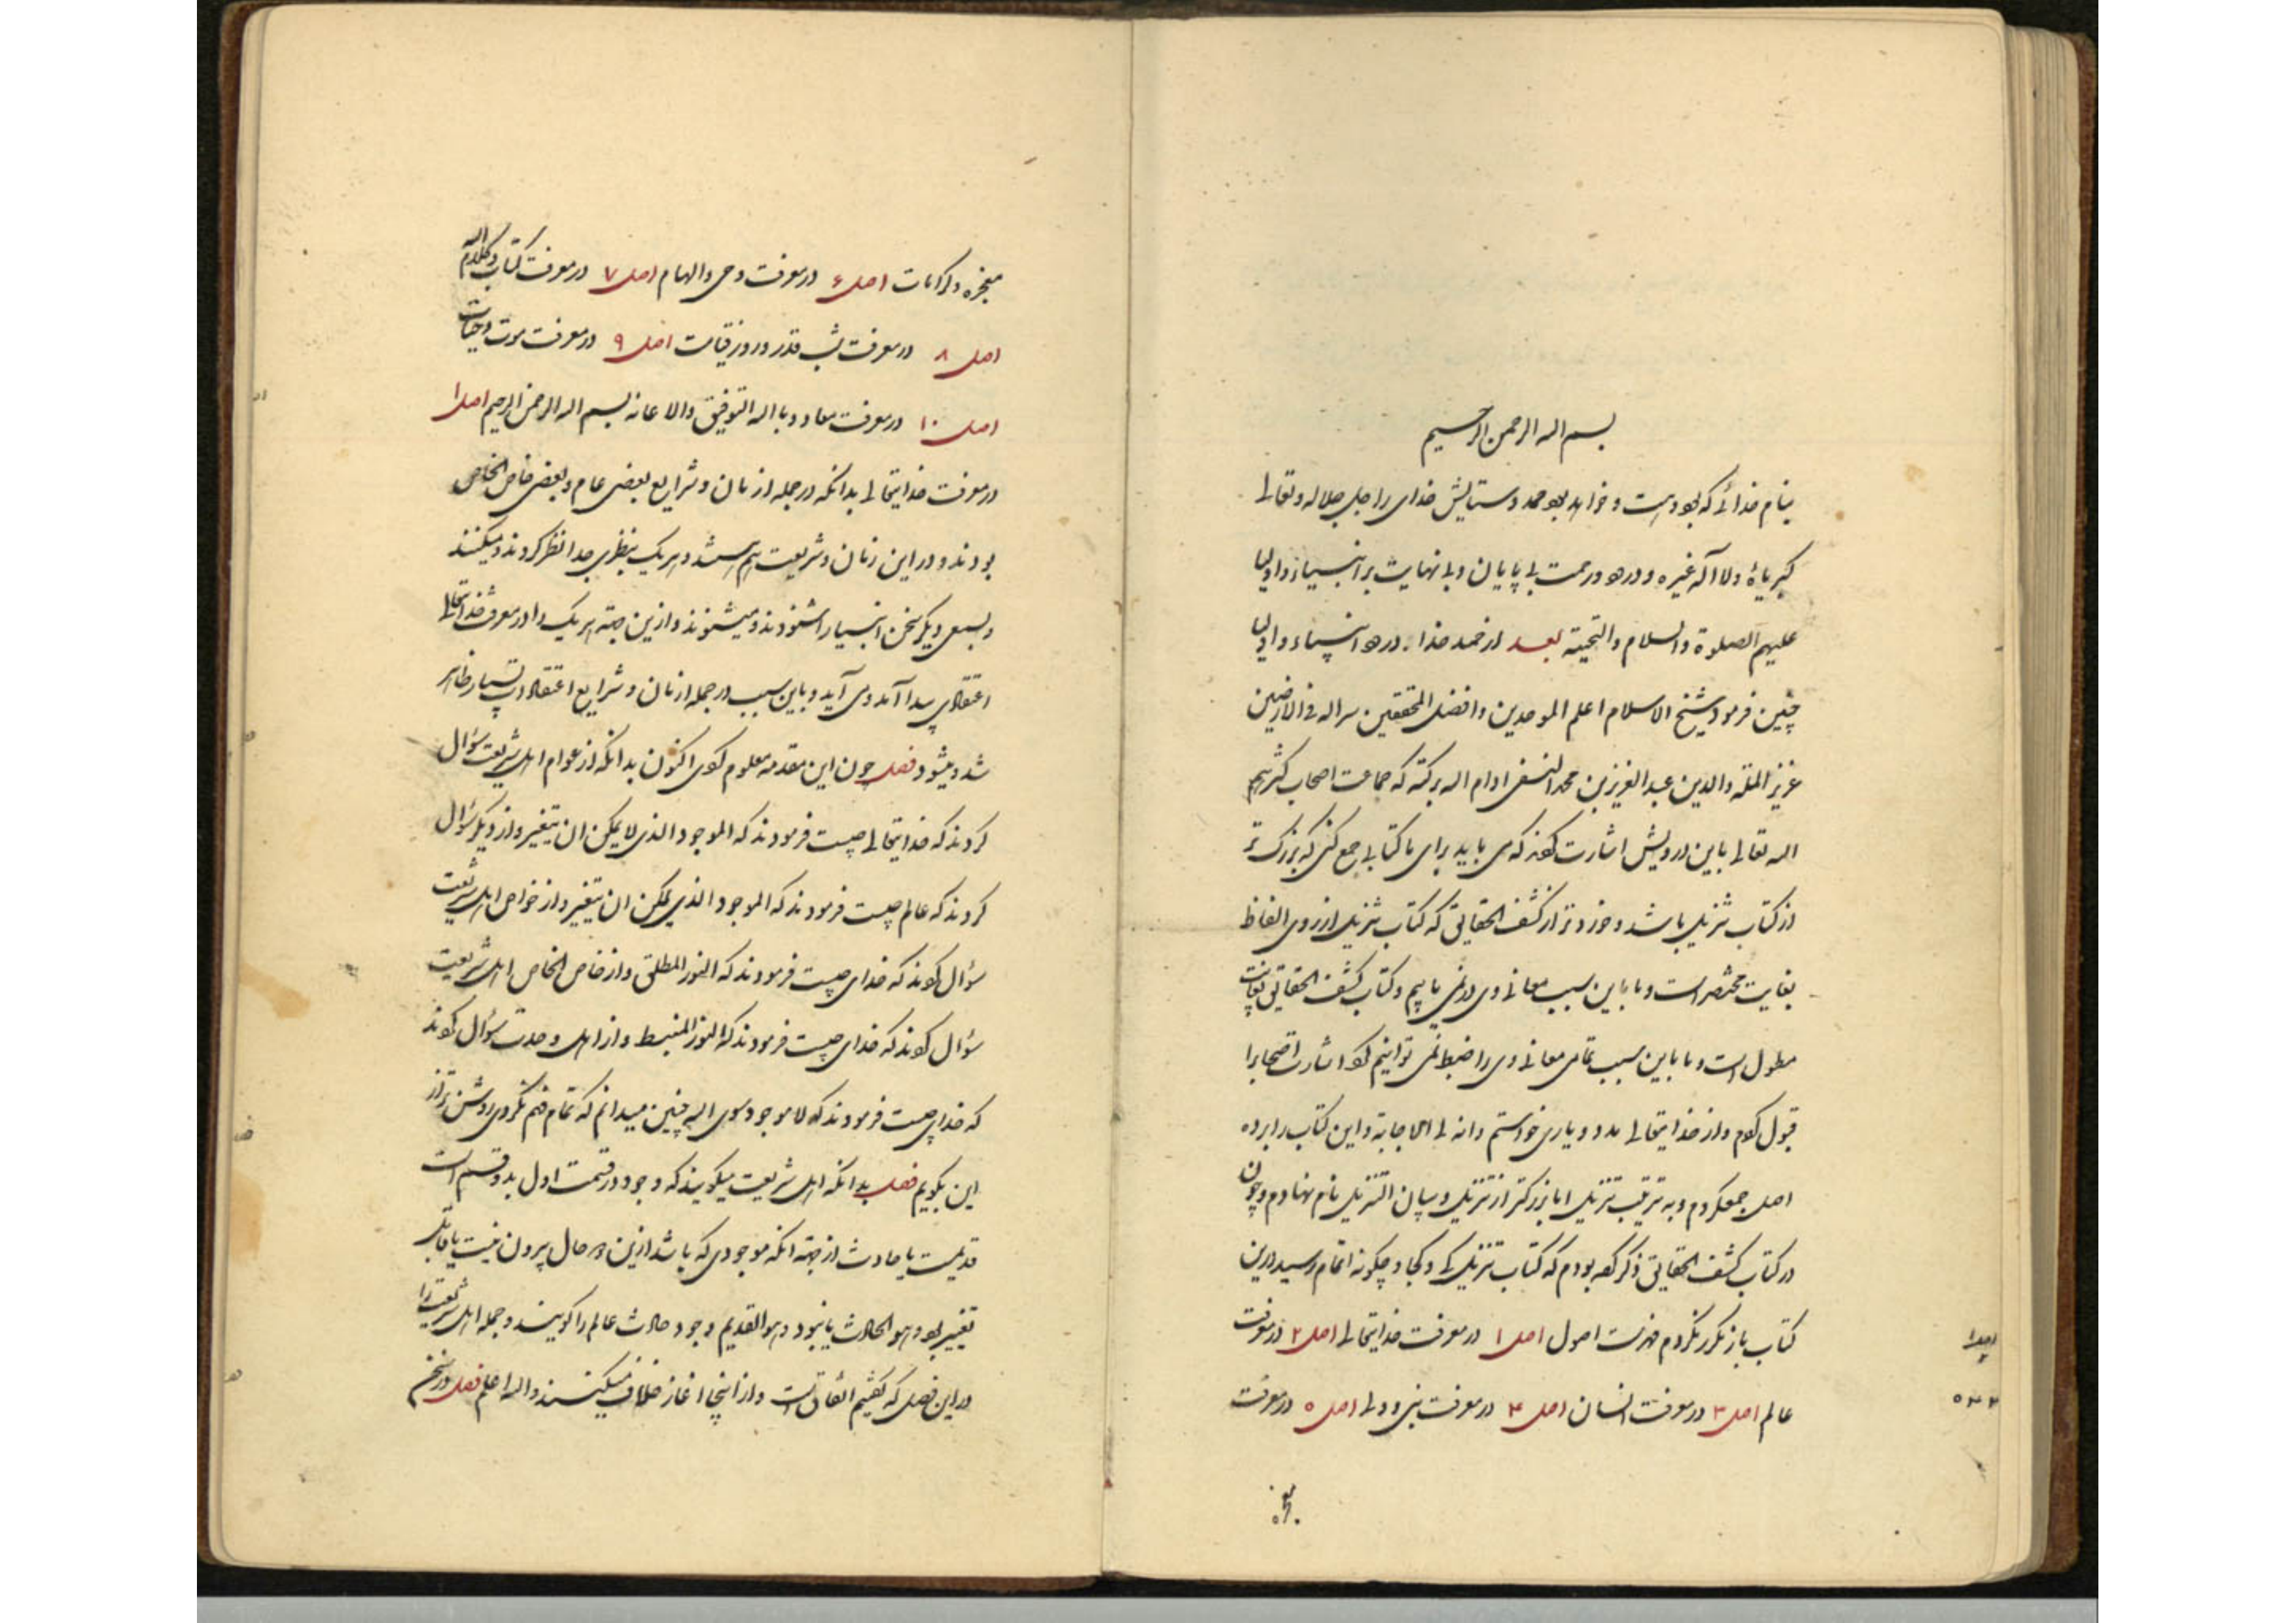 بسم اله الرحمن الرحیم
بنام خدائی که بود و هست و خواهد بود حمد و ستایش خدای را جل جلاله و تعالی
کبریاؤه ولا اله غیره و درود و رحمت بی پایان و بی نهایت بر انبیاء و اولیا
علیهم الصلوة والسلام والتحیة بعد از حمد خدا و درود انبیاء و اولیا
چنین فرمود شیخ الاسلام اعلم الموحدین وافضل المحققین سر اله فی الارضین
عزیز الملة والدین عبد العزیز بن محمد النسفی ادام اله برکته که جماعت اصحاب کثرهم
اله تعالی باین درویش اشارت کردند که می باید برای ما کتابی جمع کنی که بزرک تر
از کتاب تنزیل باشد و خوردتر از کشف الحقایق که کتاب تنزیل از روی الفاظ
بغایت مختصر است و ما باین سبب معانی وی در نمی یابیم و کتاب کشف الحقایق بغایت
مطول است و ما باین سبب تمامی معانی وی را ضبط نمی توانیم کرد اشارت اصحابرا
قبول کردم و از خدایتعالی مدد و یاری خواستم وانه لی الاجابة و این کتاب را بر ده
اصل جمعکردم و به ترتیب تنزیل اما بزرکتر از تنزیل و بیان التنزیل نام نهادم و چون
در کتاب کشف الحقایق ذکر کرده بودم که کتاب تنزیل کی و کجا و چکونه اتمام رسید درین
کتاب باز مکرر نکردم فهرست اصول اصل ۱ در معرفت خدایتعالی اصل ۲ در معرفت
عالم اصل ۳ در معرفت انسان اصل ۴ در معرفت نبی و ولی اصل ۵ در معرفت
معجزه
معجزه و کرامات اصل ۶ در معرفت وحی و الهام اصل ۷ در معرفت کتاب و کلام اله
اصل ۸ در معرفت شب قدر و روز قیامت اصل ۹ در معرفت موت و حیات
اصل ۱۰ در معرفت معاد و باله التوفیق والاعانه بسم اله الرحمن الرحیم اصل ۱
در معرفت خدایتعالی بدانکه در جمله ازمان و شرایع بعضی عام و بعضی خاص الخاص
بودند و در این زمان و شریعت هم هستند و هر یک بنظری جدا نظر کردند و میکنند
و بسمعی دیکر سخن انبیا را شنودند و میشنوند و ازین جهة هر یک را در معرفت خدایتعالی
اعتقادی پیدا آمد و می آید و باین سبب در جمله ازمان و شرایع اعتقادات بسیار ظاهر
شد و میشود فصل چون این مقدمه معلوم کردی اکنون بدانکه از عوام اهل شریعت سؤال
کردند که خدایتعالی چیست فرمودند که الموجود الذی لا یمکن ان یتغیر و از دیکر سؤال
کردند که عالم چیست فرمودند که الموجود الذی یمکن ان یتغیر و از خواص اهل شریعت
سؤال کردند که خدای چیست فرمودند که النور المطلق و از خاص الخاص اهل شریعت
سؤال کردند که خدای چیست فرمودند که النور المنبسط و از اهل وحدت سؤال کردند
که خدای چیست فرمودند که لا موجود سوی اله چنین میدانم که تمام فهم نکردی روشن تر از
این بکویم فصل بدانکه اهل شریعت میکویند که وجود در قسمت اول بدو قسم است
قدیمست یا حادث از جهة انکه موجودی که باشد ازین دو حال بیرون نیست یا قابل
تغییر بود و هو الحادث یا نبود و هو القدیم و جود حادث عالم را کویند و جمله اهل شریعت را
در این فصل که کفتیم اتفاق است و از اینجا اغاز خلاف میکنند واله اعلم فصل در سخن